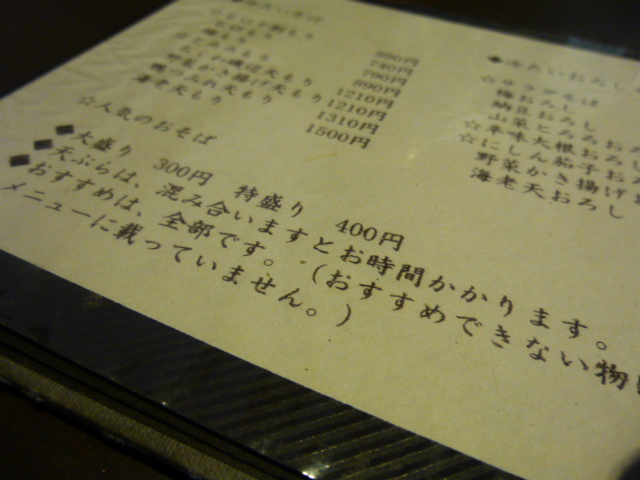 もり
天もり
野菜かき揚げ天もり
海老天もり
740円
790円
890円
1210円
1210円
1310円
1500円
☆人気のおそば
◆大盛り 300円 特盛り 400円
◆天ぷらは、混み合いますとお時間かかります。
◆おすすめは、全部です。(おすすめできない物
メニューに載っていません。)
◆冷たいおろし
☆サラダそば
梅おろし
納豆おろし
山菜とろろおろ
☆辛味大根おろし
☆にしん茄子おろ
野菜かき揚げ
海老天おろし